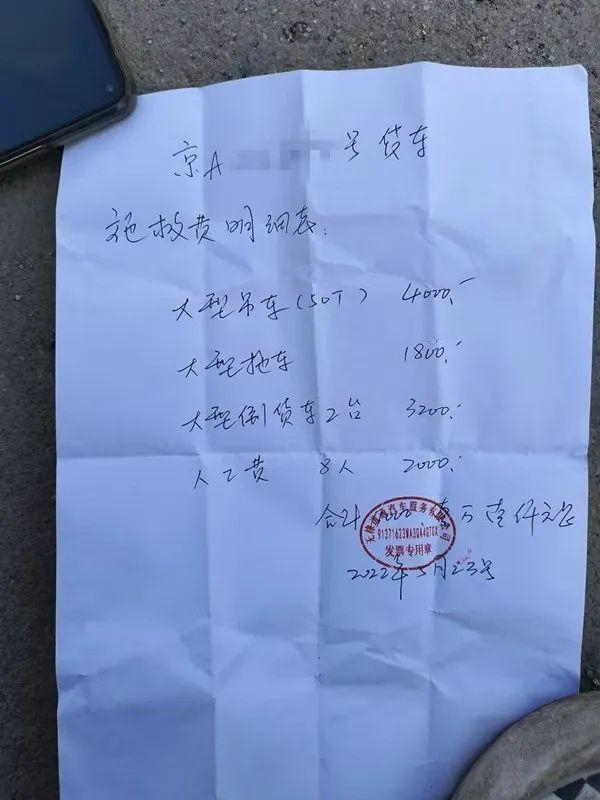 京A 号货车
施救费明细表:
大型吊车(50T) 4000.-
大型拖车 1800.-
大型倒货车2台 3200.-
人工费 8人 2000.-
合计 壹万壹仟元
汽车服务有限公司
发票专用章
2022年5月23号